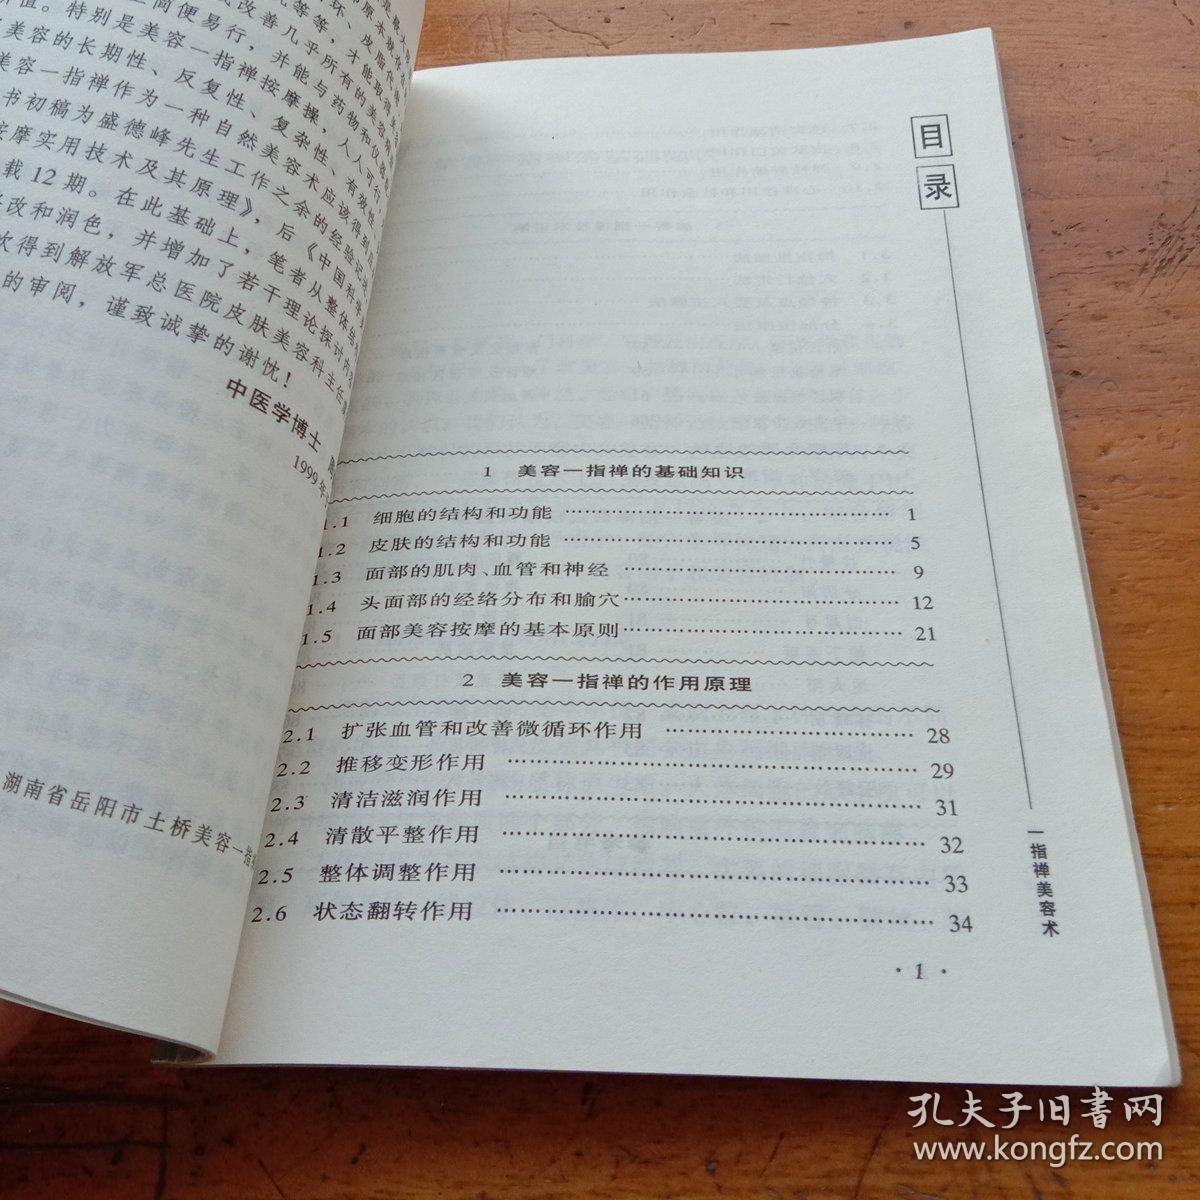 简便易行，并能与药物和仪器
价值。特别是美容一指禅按摩操，人人可行
美容的长期性、反复性、复杂性、有效性
美容一指禅作为一种自然美容术应该得到
书初稿为盛德峰先生工作之余的经验记
按摩实用技术及其原理》，后《中国科学
载12期。在此基础上，笔者从整体
改和润色，并增加了若干理论探讨内
次得到解放军总医院皮肤美容科主任
的审阅，谨致诚挚的谢忱！
中医学博士
1999年
湖南省岳阳市土桥美容一指
目录
1 美容一指禅的基础知识
1.1 细胞的结构和功能 …… 1
1.2 皮肤的结构和功能 …… 5
1.3 面部的肌肉、血管和神经 …… 9
1.4 头面部的经络分布和腧穴 …… 12
1.5 面部美容按摩的基本原则 …… 21
2 美容一指禅的作用原理
2.1 扩张血管和改善微循环作用 …… 28
2.2 推移变形作用 …… 29
2.3 清洁滋润作用 …… 31
2.4 清散平整作用 …… 32
2.5 整体调整作用 …… 33
2.6 状态翻转作用 …… 34
· 1 ·
一指禅美容术
孔夫子旧书网
www.kongfz.com